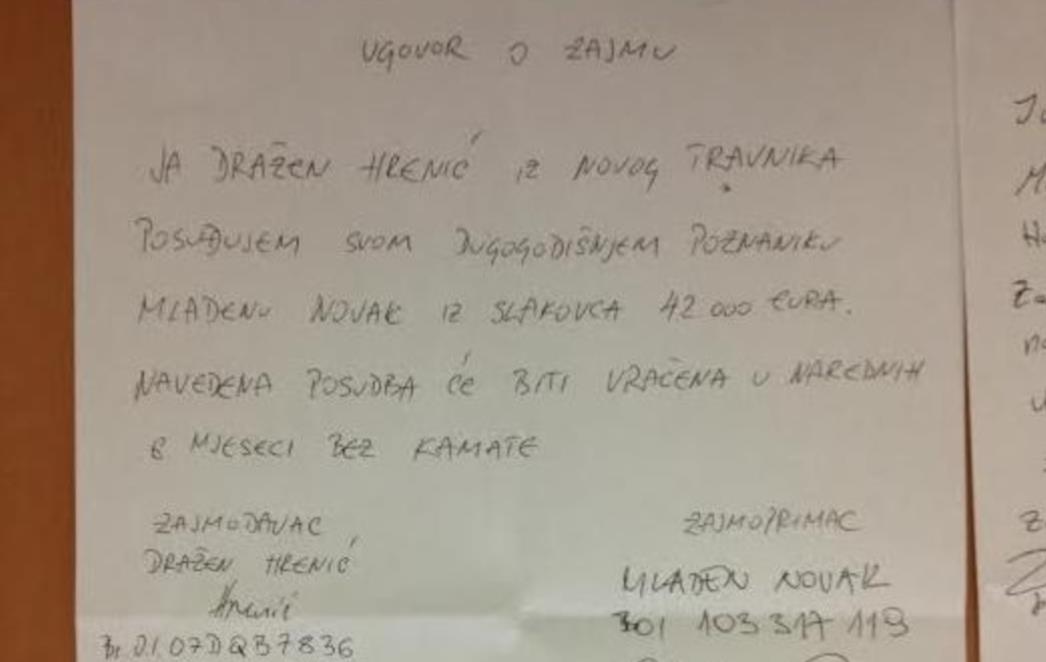 UGOVOR O ZAJMU
JA DRAŽEN HRENIĆ IZ NOVOG TRAVNIKA
POSUĐUJEM SVOM DUGOGODIŠNJEM POZNANIKU
MLADENU NOVAK IZ SLAKOVCA 42 000 EURA.
NAVEDENA POSUDBA ĆE BITI VRAČENA U NAREDNIH
MJESECI BEZ KAMATE
ZAJMODAVAC
DRAŽEN HRENIĆ
Hrenić
ZAJMOPRIMAC
MLADEN NOVAK
103 317 119